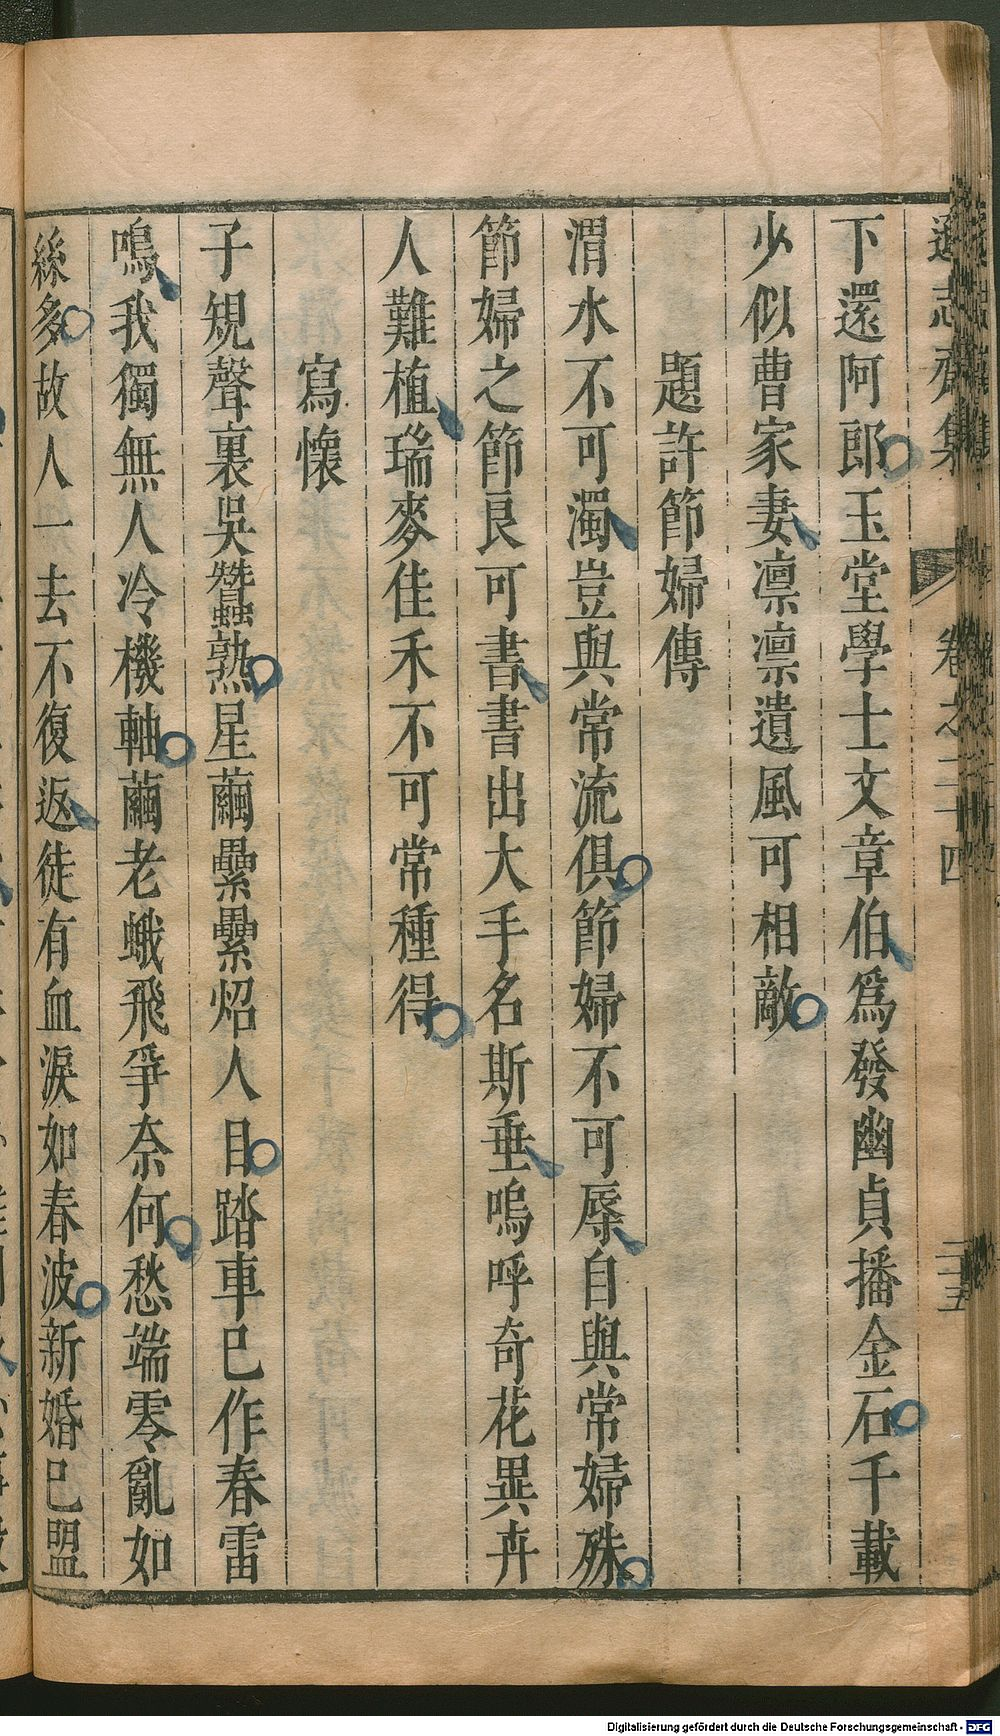 遜志齋集 卷之二十四 三十五
下還阿郎玉堂學士文章伯爲發幽貞播金石千載
少似曹家妻凛凛遺風可相敵
題許節婦傳
渭水不可濁豈與常流俱節婦不可辱自與常婦殊
節婦之節良可書書出大手名斯垂嗚呼奇花異卉
人難植瑞麥佳禾不可常種得
寫懷
子規聲裏吳蠶熟星繭纍纍炤人目踏車已作春雷
鳴我獨無人冷機軸繭老蛾飛爭奈何愁端零亂如
絲多故人一去不復返徒有血淚如春波新婚已盟
Digitalisierung gefördert durch die Deutsche Forschungsgemeinschaft - DFG